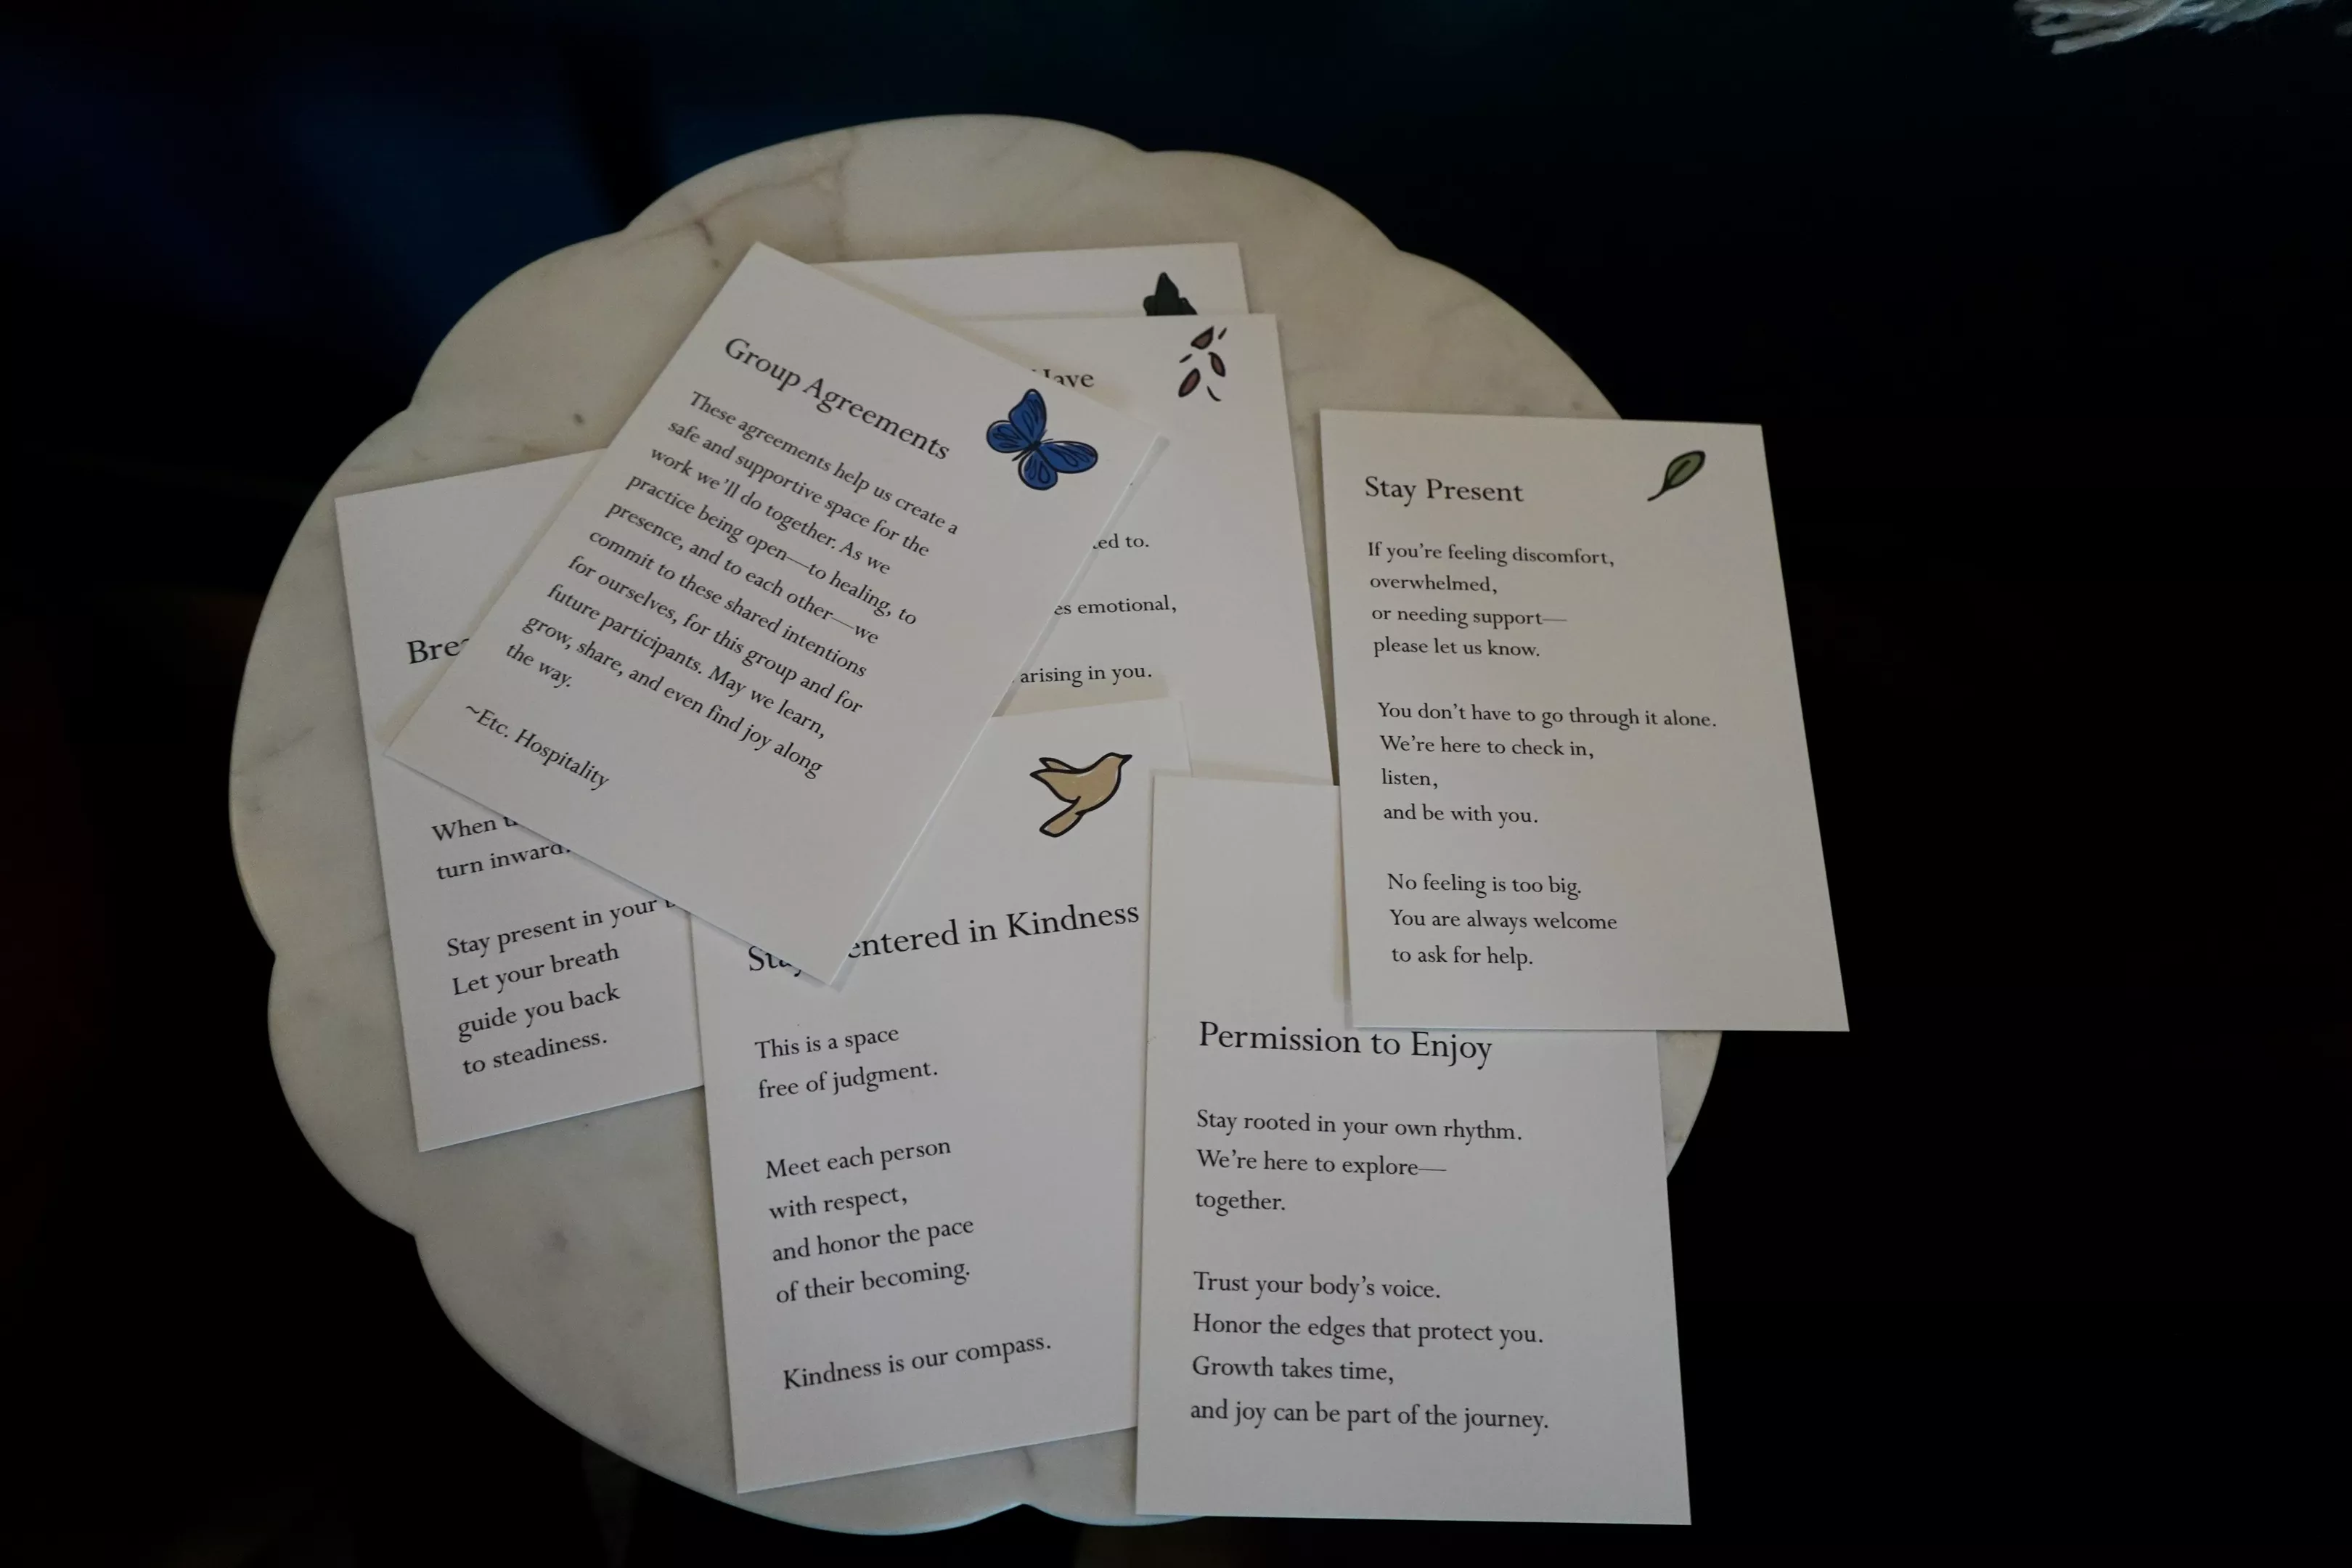 Group Agreements
These agreements help us create a
safe and supportive space for the
work we'll do together. As we
practice being open—to healing, to
presence, and to each other—we
commit to these shared intentions
for ourselves, for this group and for
future participants. May we learn,
grow, share, and even find joy along
the way.
~Etc. Hospitality
to.
emotional,
arising in you.
Stay Present
If you're feeling discomfort,
overwhelmed,
or needing support—
please let us know.
You don't have to go through it alone.
We're here to check in,
listen,
and be with you.
No feeling is too big.
You are always welcome
to ask for help.
When
turn inward.
Stay present in your
Let your breath
guide you back
to steadiness.
in Kindness
This is a space
free of judgment.
Meet each person
with respect,
and honor the pace
of their becoming.
Kindness is our compass.
Permission to Enjoy
Stay rooted in your own rhythm.
We're here to explore—
together.
Trust your body's voice.
Honor the edges that protect you.
Growth takes time,
and joy can be part of the journey.